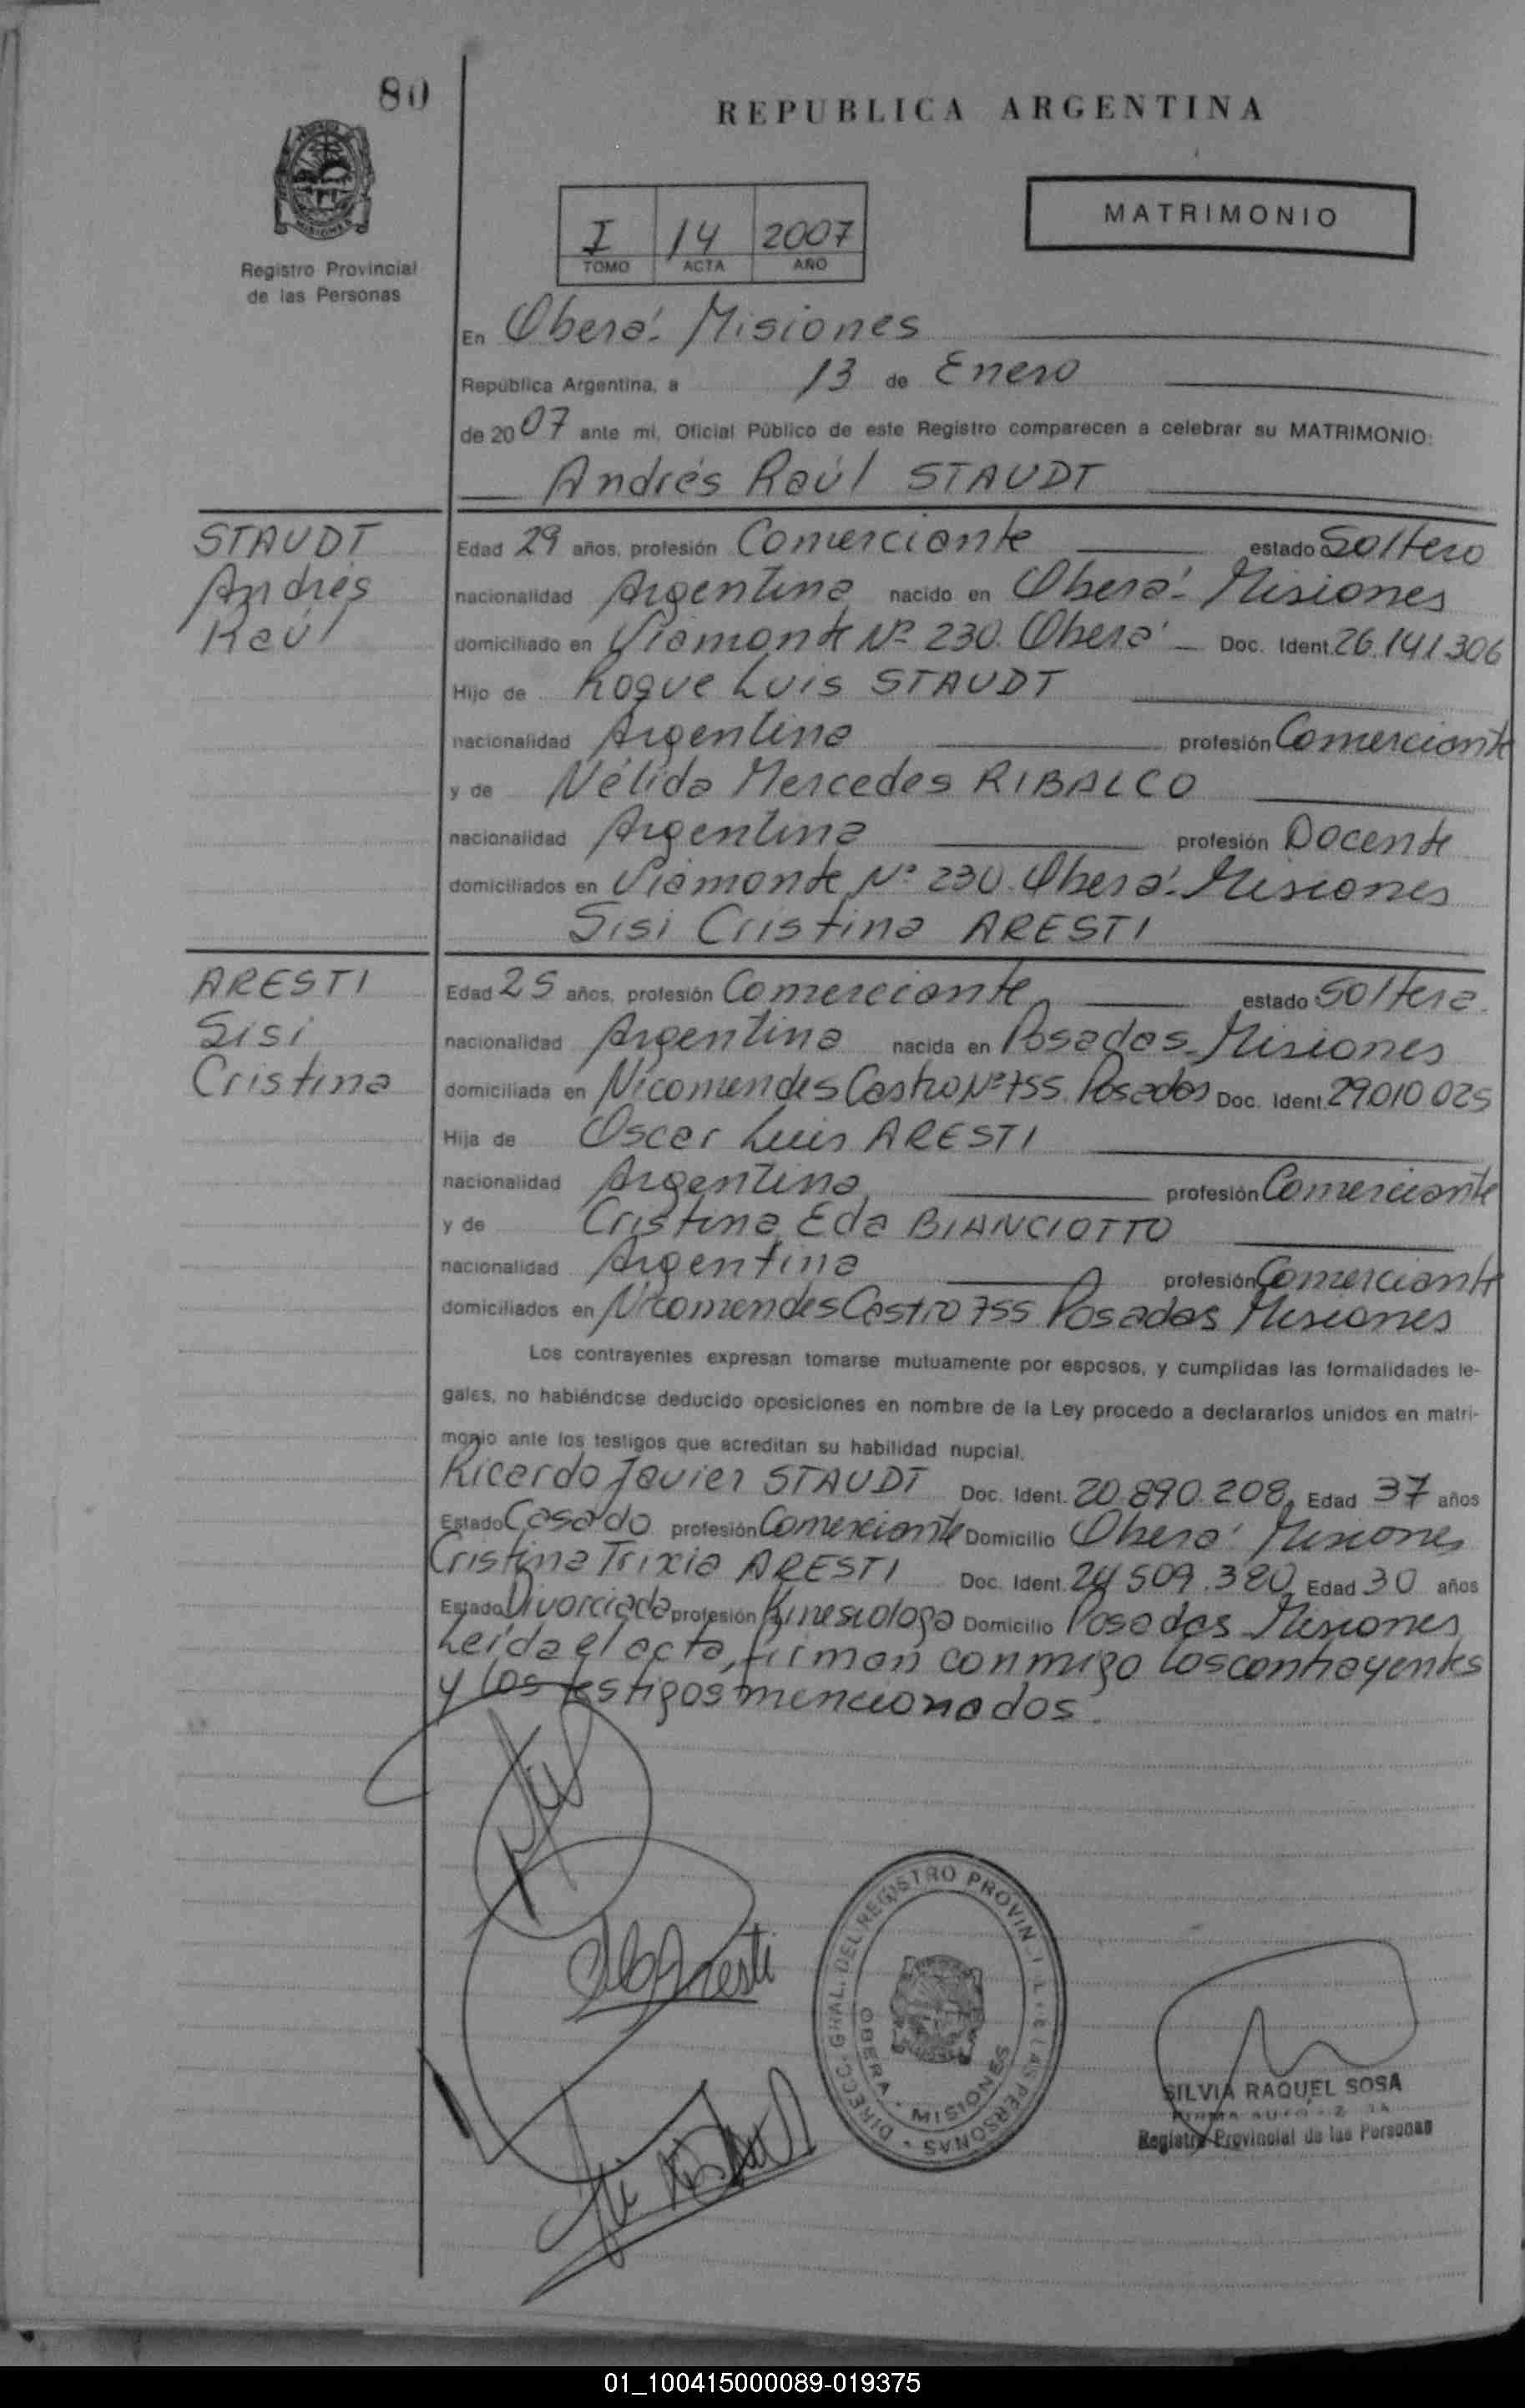 80
REPUBLICA ARGENTINA
MATRIMONIO
I 14 2007
TOMO ACTA AÑO
Registro Provincial
de las Personas
En Oberá - Misiones
República Argentina, a 13 de Enero
de 2007 ante mi, Oficial Público de este Registro comparecen a celebrar su MATRIMONIO:
Andrés Raúl STAUDT
STAUDT
Andrés
Raúl
Edad 29 años, profesión Comerciante estado Soltero
nacionalidad Argentina nacido en Oberá - Misiones
domiciliado en Viamonte Nº 230. Oberá - Doc. Ident. 26.141.306
Hijo de Roque Luis STAUDT
nacionalidad Argentina profesión Comerciante
y de Nélida Mercedes RIBALCO
nacionalidad Argentina profesión Docente
domiciliados en Viamonte Nº 230. Oberá - Misiones
Sisi Cristina ARESTI
ARESTI
Sisi
Cristina
Edad 25 años, profesión Comerciante estado Soltera.
nacionalidad Argentina nacida en Posadas - Misiones
domiciliada en Nicomendes Castro Nº 755. Posadas Doc. Ident. 29.010.025
Hija de Oscar Luis ARESTI
nacionalidad Argentina profesión Comerciante
y de Cristina Eda BIANCIOTTO
nacionalidad Argentina profesión Comerciante
domiciliados en Nicomendes Castro 755 Posadas Misiones
Los contrayentes expresan tomarse mutuamente por esposos, y cumplidas las formalidades le-
gales, no habiéndose deducido oposiciones en nombre de la Ley procedo a declararlos unidos en matri-
monio ante los testigos que acreditan su habilidad nupcial.
Ricardo Javier STAUDT Doc. Ident. 20.890.208 Edad 37 años
Estado Casado profesión Comerciante Domicilio Oberá - Misiones
Cristina Trixia ARESTI Doc. Ident. 24.509.380 Edad 30 años
Estado Divorciada profesión Kinesiologa Domicilio Posadas - Misiones
Leída el acta, firman conmigo los contrayentes
y los testigos mencionados.
DIRECC. GRAL. DEL REGISTRO PROVINCIAL DE LAS PERSONAS
OBERA - MISIONES
SILVIA RAQUEL SOSA
FIRMA AUTORIZADA
Registro Provincial de las Personas
01_100415000089-019375